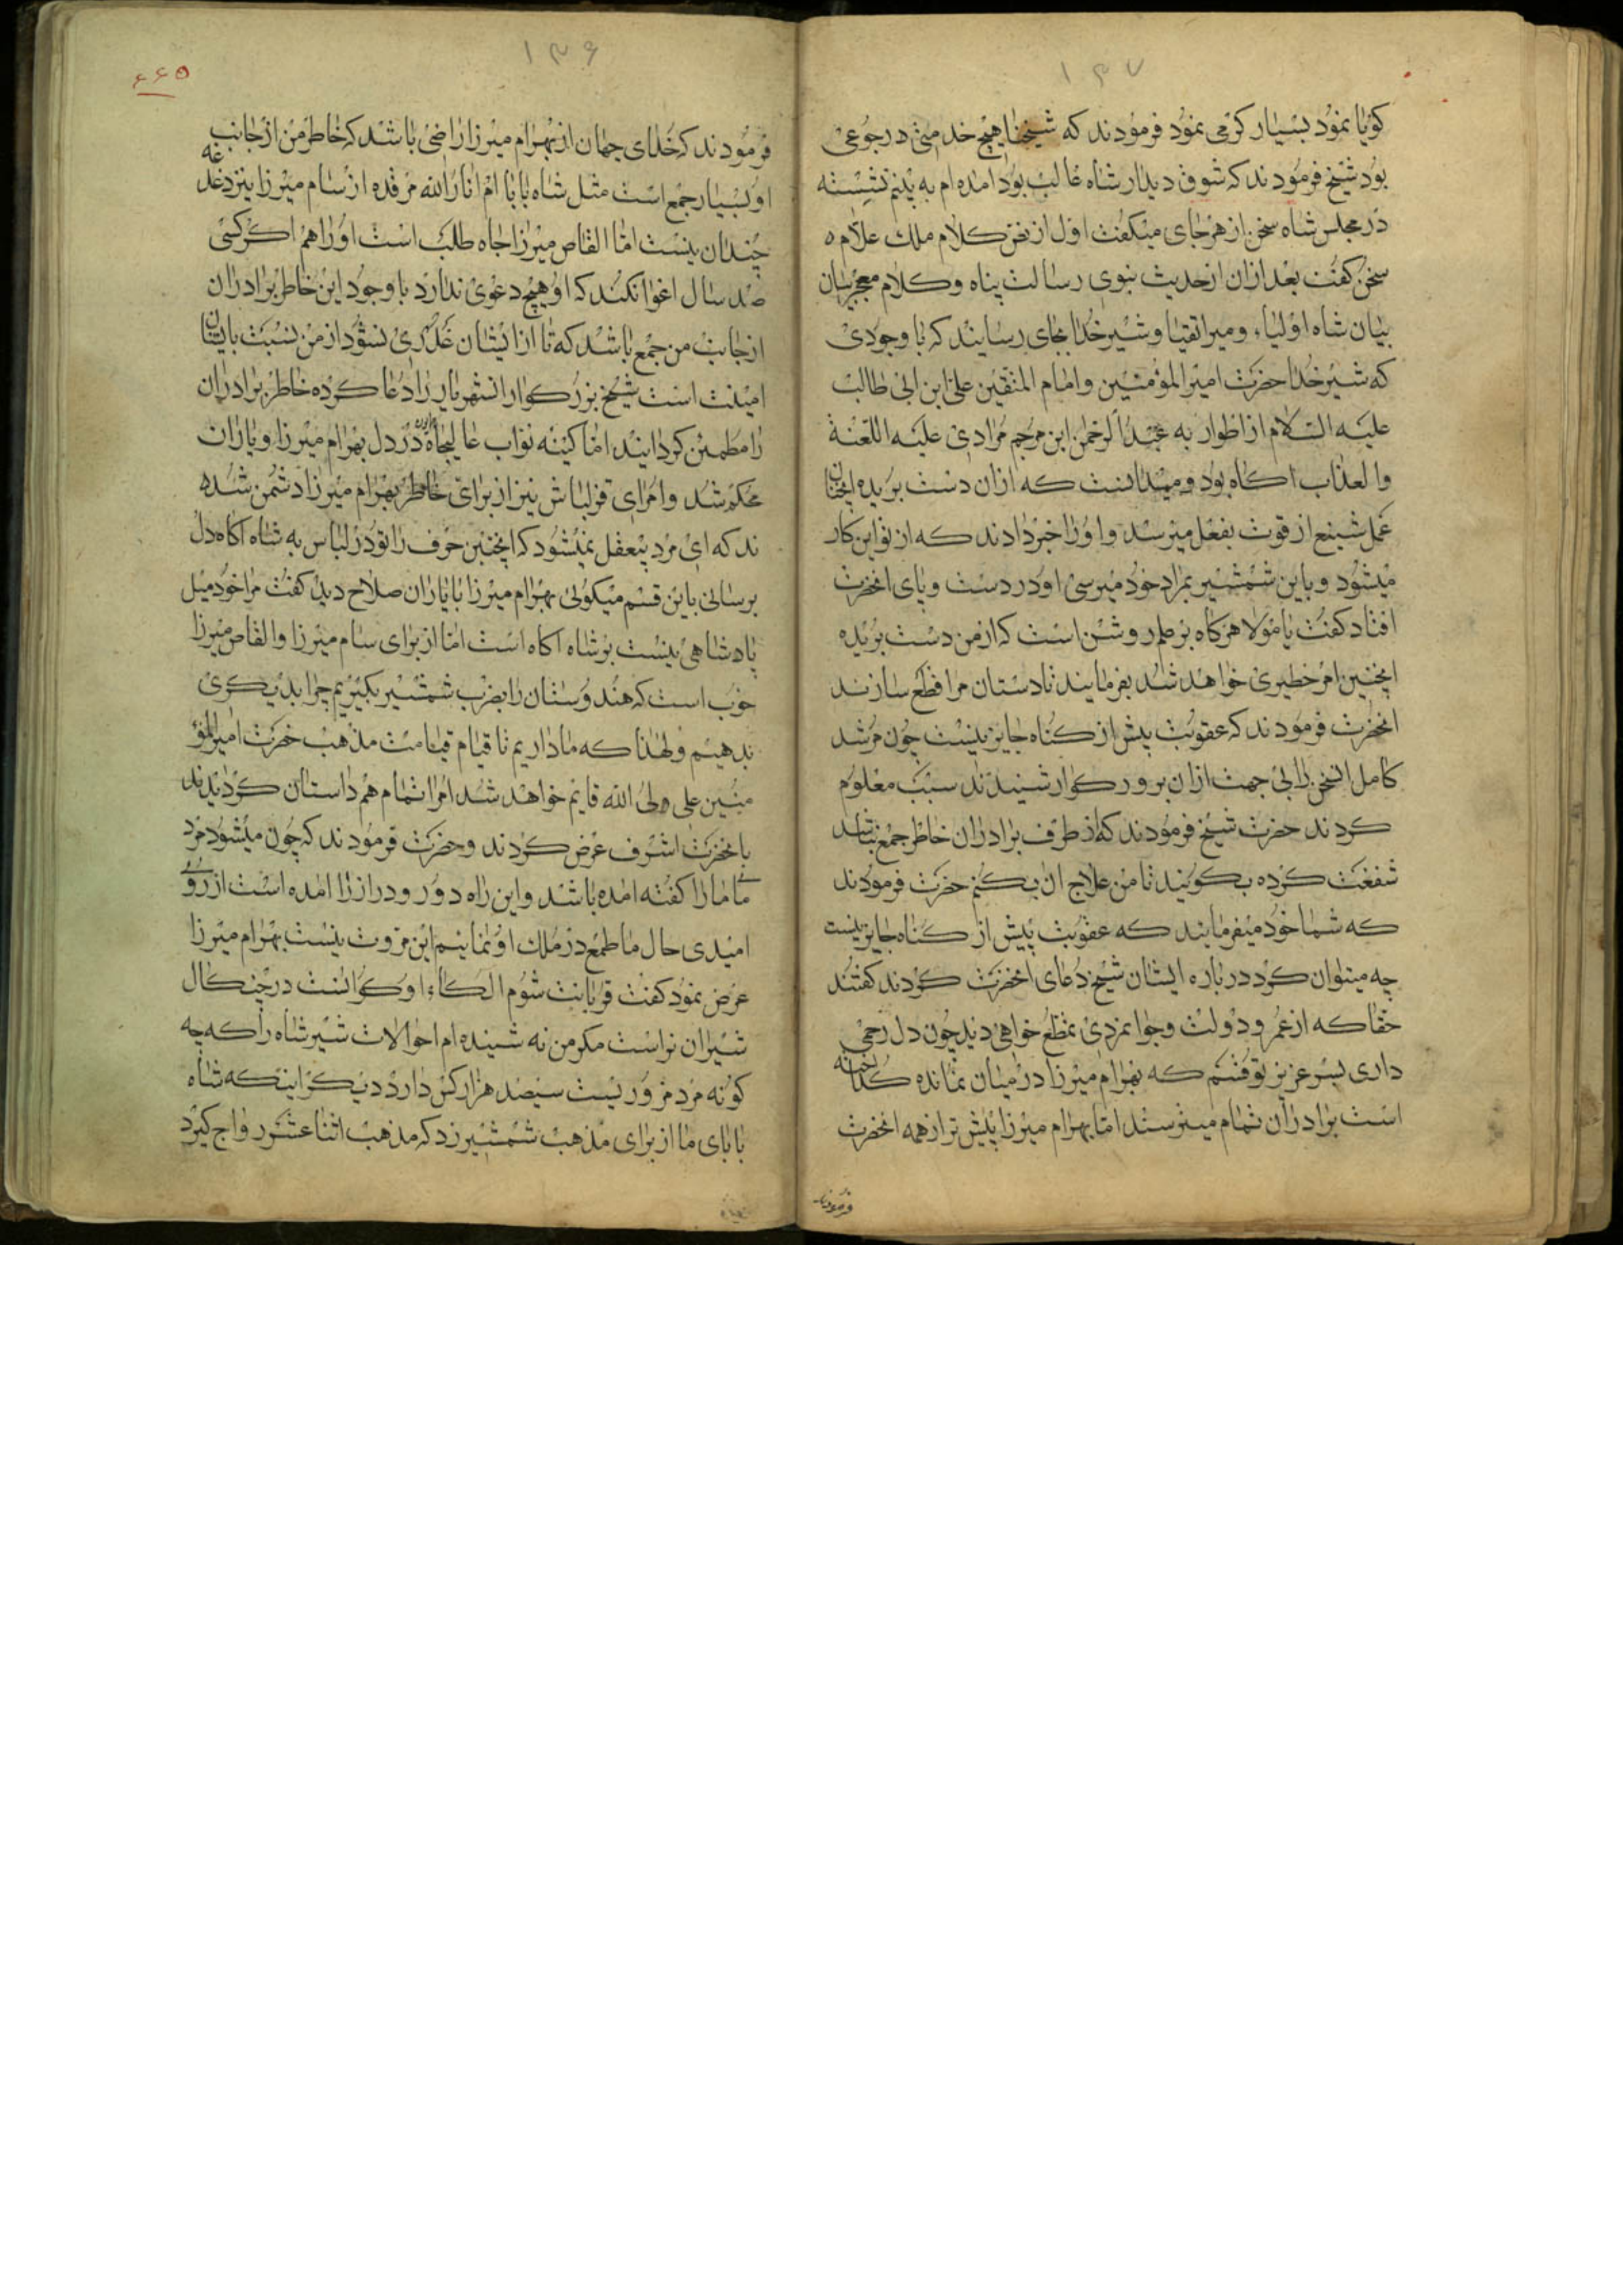 ۱۳۷
کویا نمود بسیار کرمی نمود فرمودند که شیخنا هیچ خدمتی در رجوعی
بود شیخ فرمودند که شوق دیدار شاه غالب بود امده ام به بینم نشسته
در مجلس شاه سخن از هر جای میکفت اول از نص کلام ملک علام ه
سخن کفت بعد ازان از حدیث نبوی رسالت پناه و کلام معجز بیان
بیان شاه اولیاء و میر اتقیا و شیر خدا بجای رسانید که با وجودی
که شیر خدا حضرت امیر المؤمنین و امام المتقین علی ابن ابی طالب
علیه السلام از اطوار به عبد الرحمن ابن مرجم مرادی علیه اللعنة
والعذاب اکاه بود و میدانست که ازان دست بریده انچنان
عمل شینع از قوت بفعل میرسد و او را خبر دادند که از تو این کار
میشود و باین شمشیر بمراد خود میرسی او در دست و پای انحضرت
افتاد کفت یا مولا هرکاه بر علم روشن است که از من دست بریده
اینچنین امر خطیری خواهد شد بفرمایند تا دستان مرا قطع سازند
انحضرت فرمودند که عقوبت پیش از کناه جایز نیست چون مرشد
کامل السخن را بی جهت ازان بزرکوار شنیدند سبب معلوم
کردند حضرت شیخ فرمودند که از طرف برادران خاطر جمع نباشد
شفقت کرده بکویند تا من علاج ان بکنم حضرت فرمودند
که شما خود میفرمایند که عقوبت پیش از کناه جایز نیست
چه میتوان کرد درباره ایشان شیخ دعای انحضرت کردند کفتند
حقا که از عمر و دولت و جوانمردی تمتع خواهی دید چون دل رحمی
داری بسر عزیز تو قسم که بهرام میرزا در میان نمانده کدخدانه
است برادران تمام میترسند اما بهرام میرزا پیش تر از همه انحضرت
فرمودند
۱۳۶
۶۶۵
فرمودند که خدای جهان از بهرام میرزا راضی باشد که خاطر من از جانب
او بسیار جمع است مثل شاه بابا ام انار الله مرقده از سام میرزا نیز دغدغه
چندان نیست اما القاص میرزا جاه طلب است او را هم اکر کسی
صد سال اغوا نکند که او هیچ دعوی ندارد با وجود این خاطر برادران
از جانب من جمع باشد که تا از ایشان غدری نشود از من نسبت بایشان
امینت است شیخ بزرکوار انشهریار را دعا کرده خاطر برادران
را مطمئن کردانیند اما کینه نواب عالیجاه در دل بهرام میرزا و یاران
محکم شد و امرای قزلباش نیز از برای خاطر بهرام میرزا دشمن شده
ند که ای مرد بیعقل نمیشود که اینچنین حرف را تو در لباس به شاه اکاه دل
برسانی باین قسم میکوئی بهرام میرزا با یاران صلاح دید کفت مرا خود میل
پادشاهی نیست بر شاه اکاه است اما از برای سام میرزا و القاص میرزا
خوب است که هندوستان را بضرب شمشیر بکیریم چرا بدیکری
بدهیم ولهذا که ما داریم تا قیام قیامت مذهب حضرت امیر المؤ
منین علی ولی الله قایم خواهد شد امرا تمام هم داستان کردیدند
بانحضرت اشرف عرض کردند و حضرت فرمودند که چون میشود مرد
ما را کفته امده باشد و این راه دور و دراز را امده است از روی
امیدی حال ما طمع در ملک او نمائیم این مروت نیست بهرام میرزا
عرض نمود کفت قربانت شوم الکاء او کوالنت در چنکال
شیران تراست مکر من نه شنیده ام احوالات شیر شاه را که چه
کونه مرد مزوریست سیصد هزار کس دارد دیکر اینکه شاه
بابای ما از برای مذهب شمشیر زد که مذهب اثنا عشر رواج کیرد